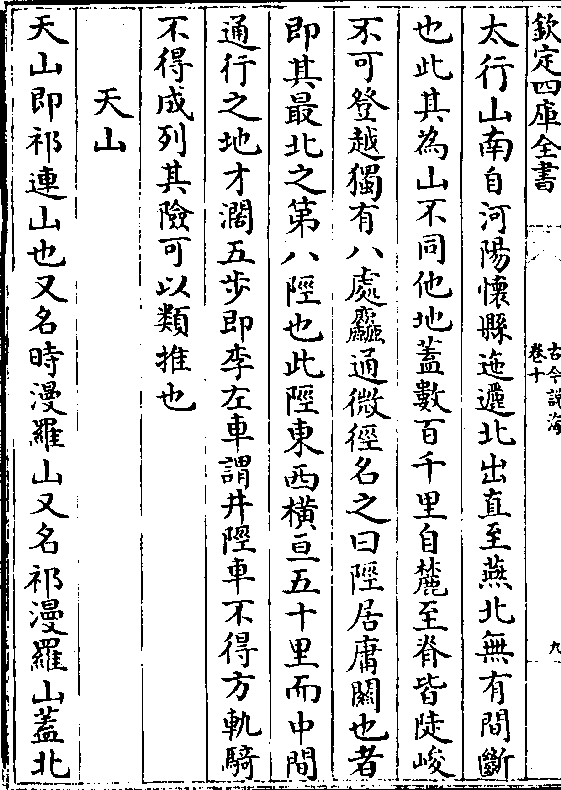 欽定四庫全書
古今說海
卷十
九
太行山南自河陽懷縣迤邐北出直至燕北無有間斷
也此其為山不同他地蓋數百千里自麓至脊皆陡峻
不可登越獨有八處麤通微徑名之曰陘居庸關也者
即其最北之第八陘也此陘東西橫亘五十里而中間
通行之地才濶五步即李左車謂井陘車不得方軌騎
不得成列其險可以類推也
天山
天山即祁連山也又名時漫羅山又名祁漫羅山蓋北